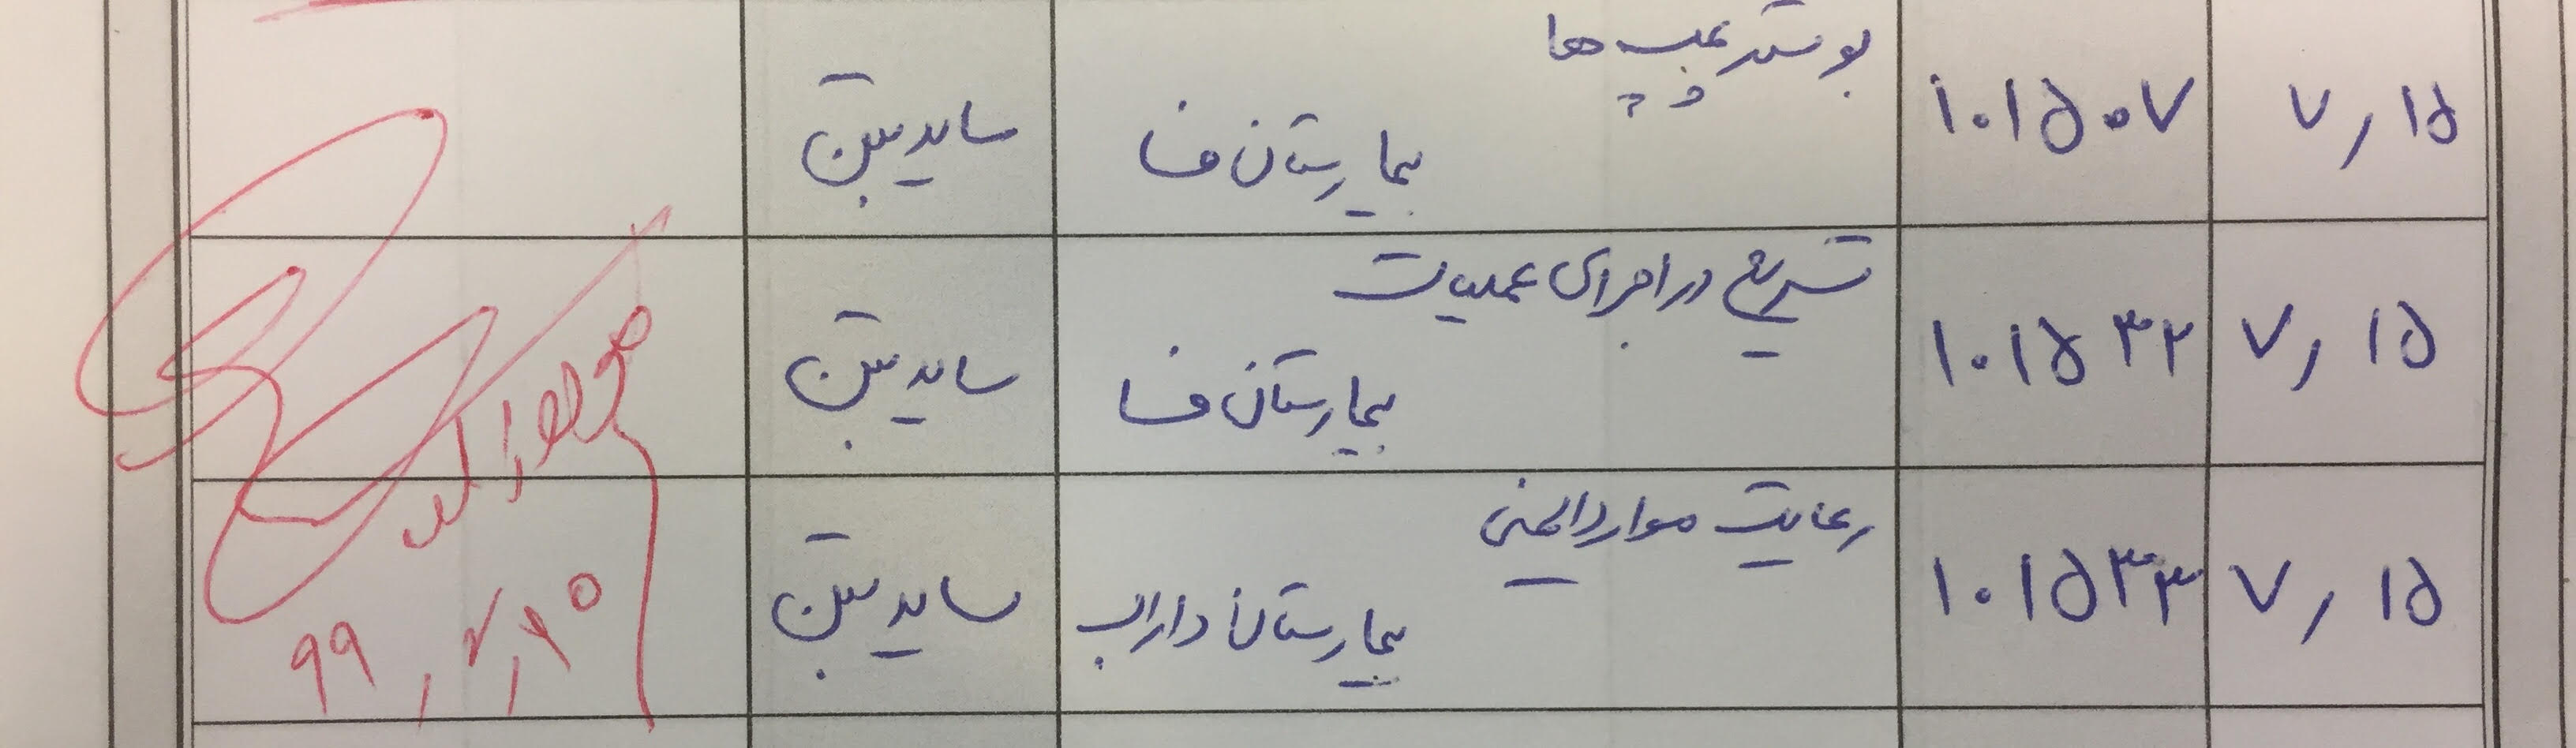 ۷/۱۵ ۱۰۱۵۰۷ بوستر پمپ ها
بیمارستان فسا سایدبتن
۷/۱۵ ۱۰۱۵۳۲ تسریع در اجرای عملیات
بیمارستان فسا سایدبتن
۷/۱۵ ۱۰۱۵۳۳ رعایت موارد ایمنی
بیمارستان داراب سایدبتن
۹۹/۷/۱۵